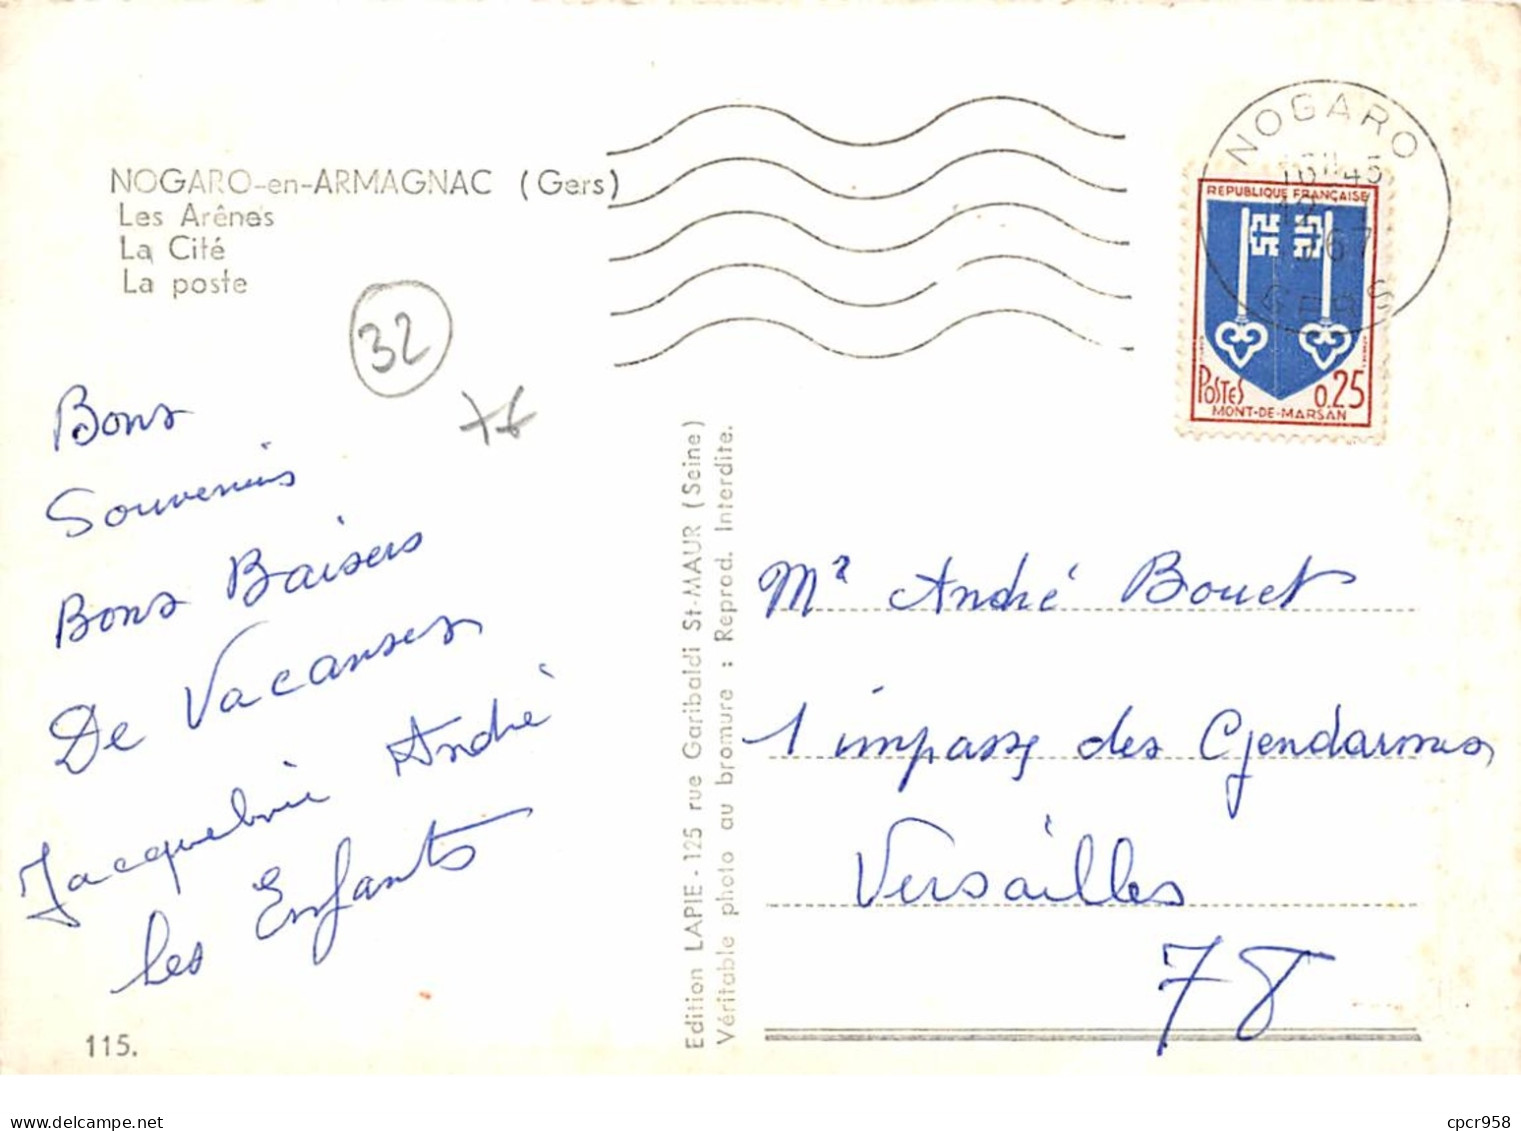 NOGARO-en-ARMAGNAC (Gers)
Les Arênes
La Cité
La poste
32
Bons
Souvenirs
Bons Baisers
De Vacanses
Jacqueline André
les Enfants
115.
Edition LAPIE - 125 rue Garibaldi St-MAUR (Seine)
Véritable photo au bromure : Reprod. Interdite.
NOGARO
16H45
67
GERS
REPUBLIQUE FRANÇAISE
POSTES 0,25
MONT-DE-MARSAN
Mr André Bouet
1 impasse des Gendarmes
Versailles
78
cpcr958